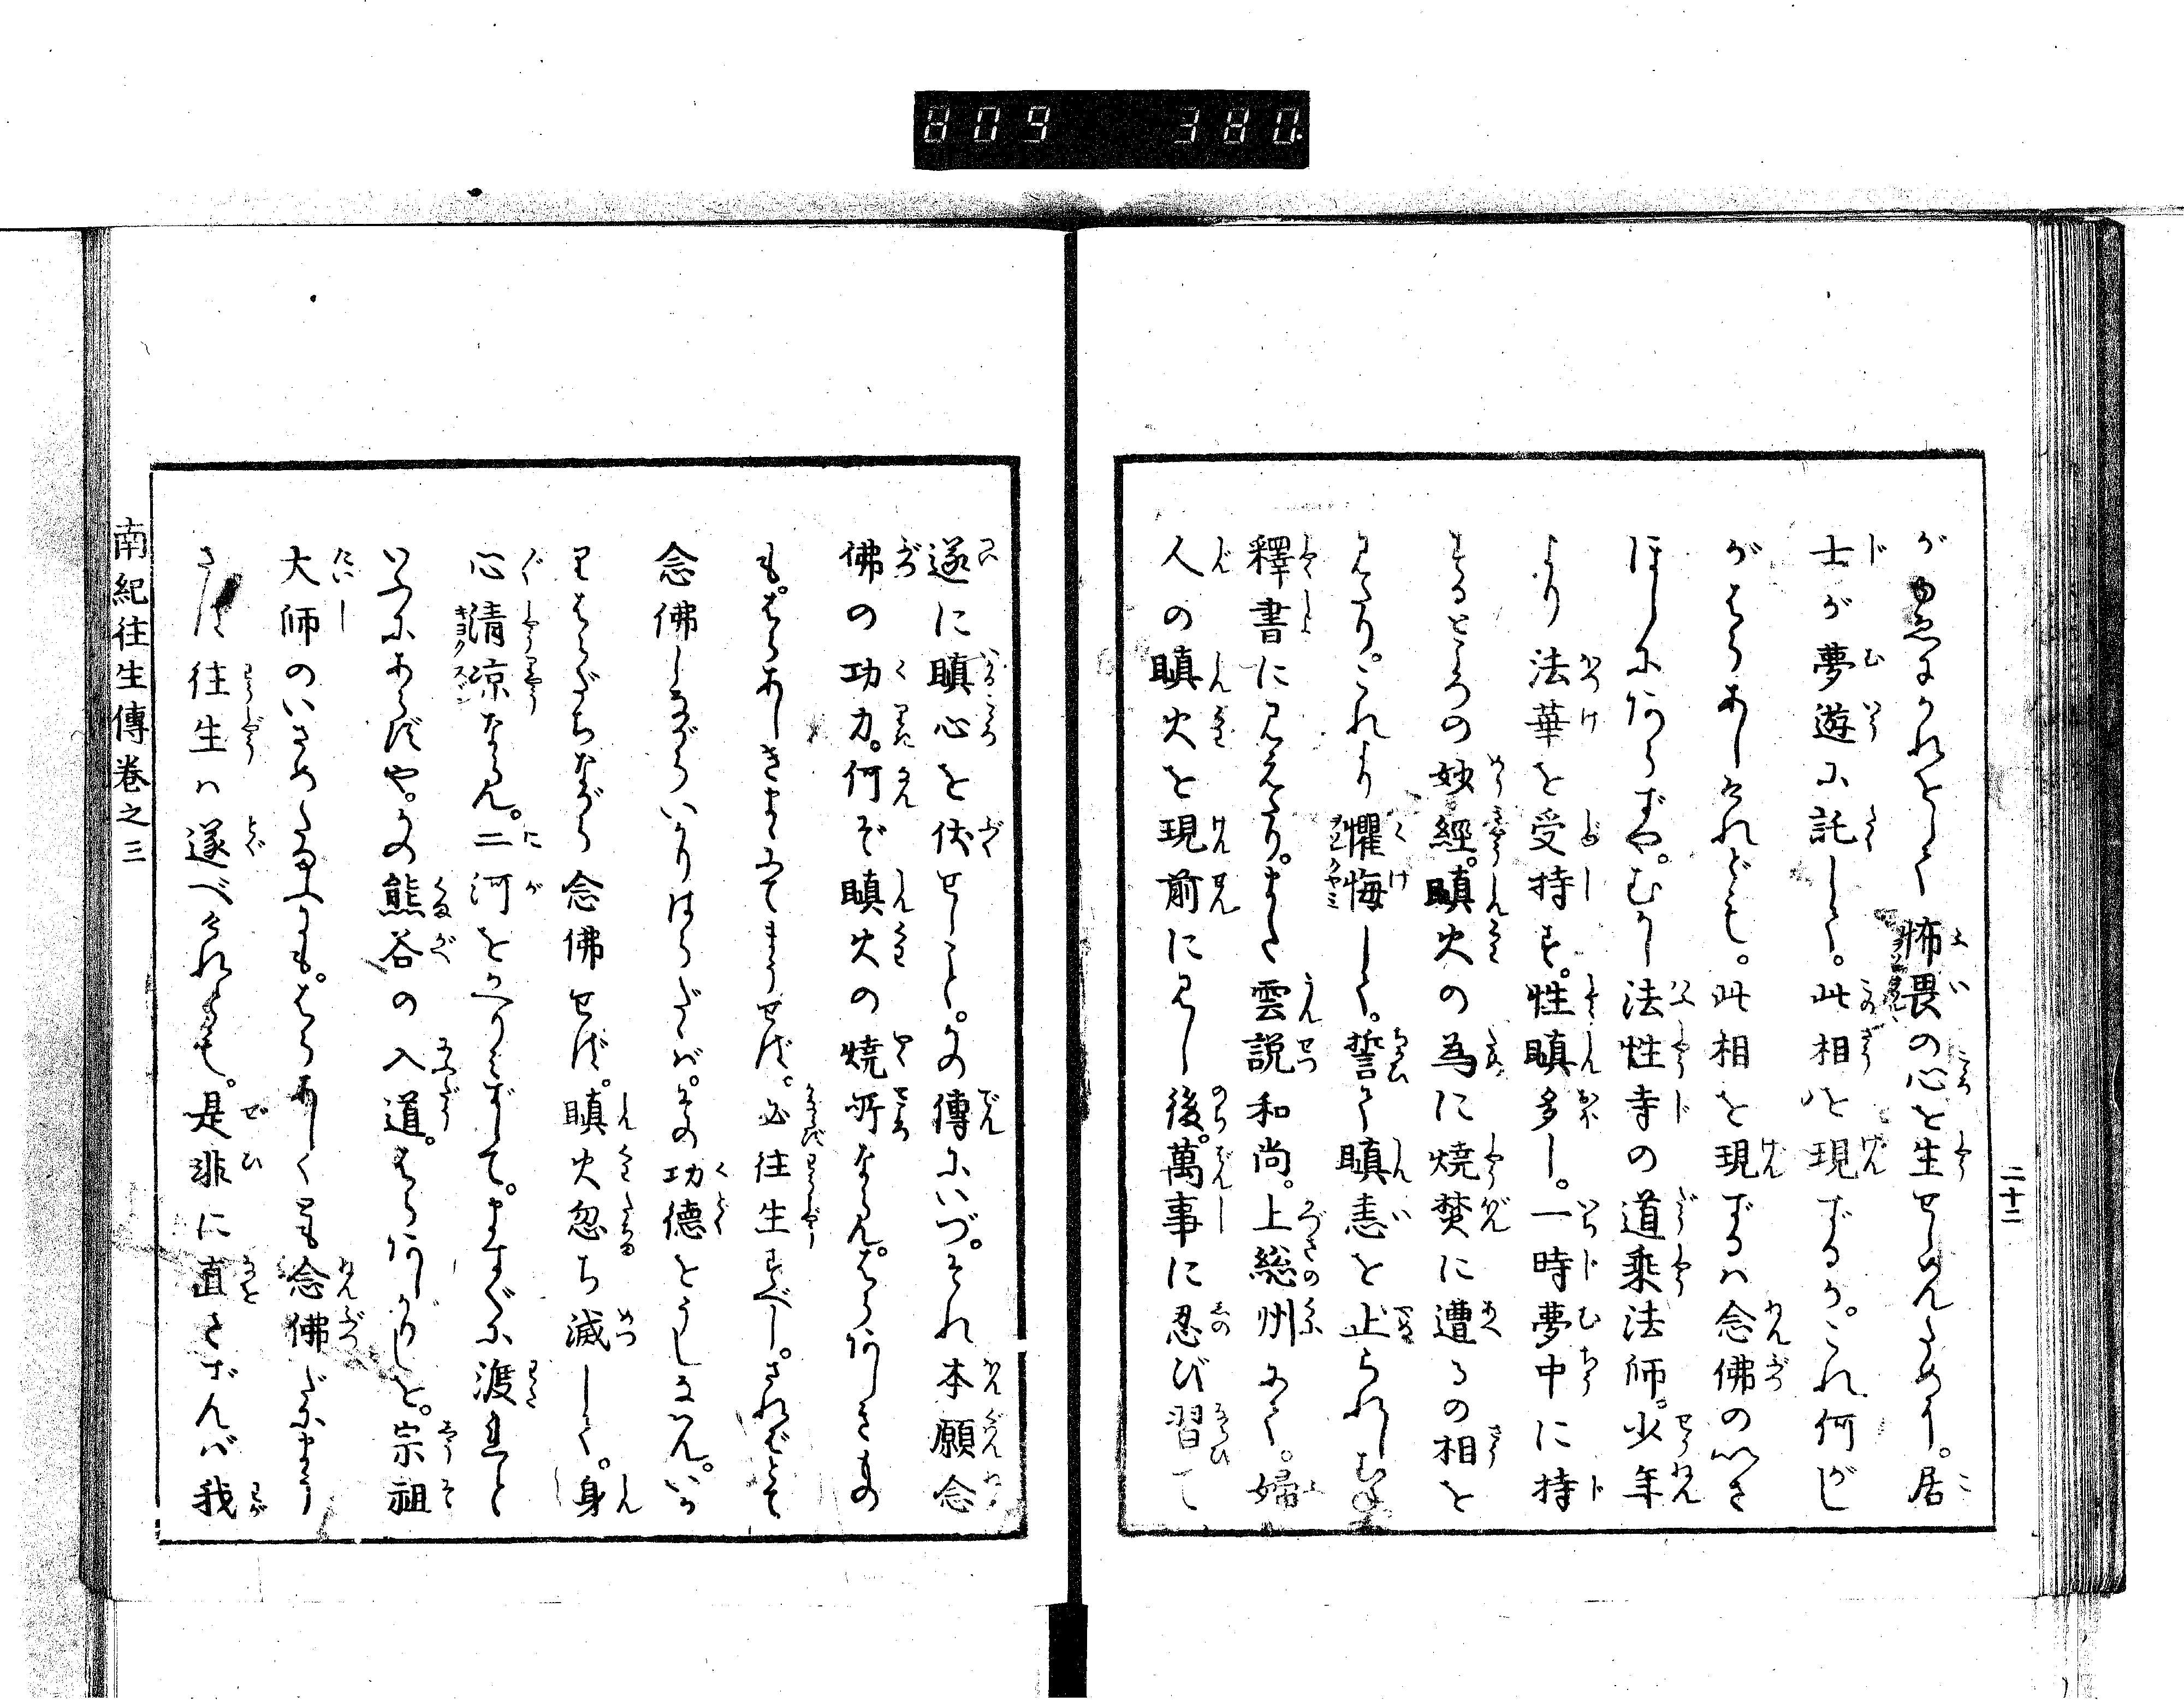 809 380.
二十二
がゆゑよかれをして怖畏の心を生ぜしめんためなり。居
士が夢遊に託して。此相を現ずるか。これ何がし
がはらあしけれども。此相を現ずるハ念佛のいさ
ほしにあらずや。むかし法性寺の道乗法師。少年
より法華を受持す。性瞋多し。一時夢中に持
するところの妙經。瞋火の為に焼焚に遭るの相を
見たり。これより懼悔して。誓て瞋恚を止られし
釋書に見えたり。また雲説和尚。上総州にて。婦
人の瞋火を現前に見し後。萬事に忍び習て
遂に瞋心を伏せしこと。かの傳にいづ。それ本願念
佛の功力。何ぞ瞋火の焼所ならん。はらあしきもの
も。はらあしきまゝにてまうせば。必往生すべし。されバとて
念佛しながらいかりはらだゝバ。その功德をうしなハん。いか
りはらだちながら念佛せば。瞋火忽ち滅して。身
心清涼ならん。二河をかへりみずして。ますぐに渡れと
いふにあらずや。かの熊谷の入道。はらあしかりしを。宗祖
大師のいさめたまふにも。はらあしくとも念佛だにまう
さば往生ハ遂べけれども。是非に直さずんバ我
南紀往生傳卷之三